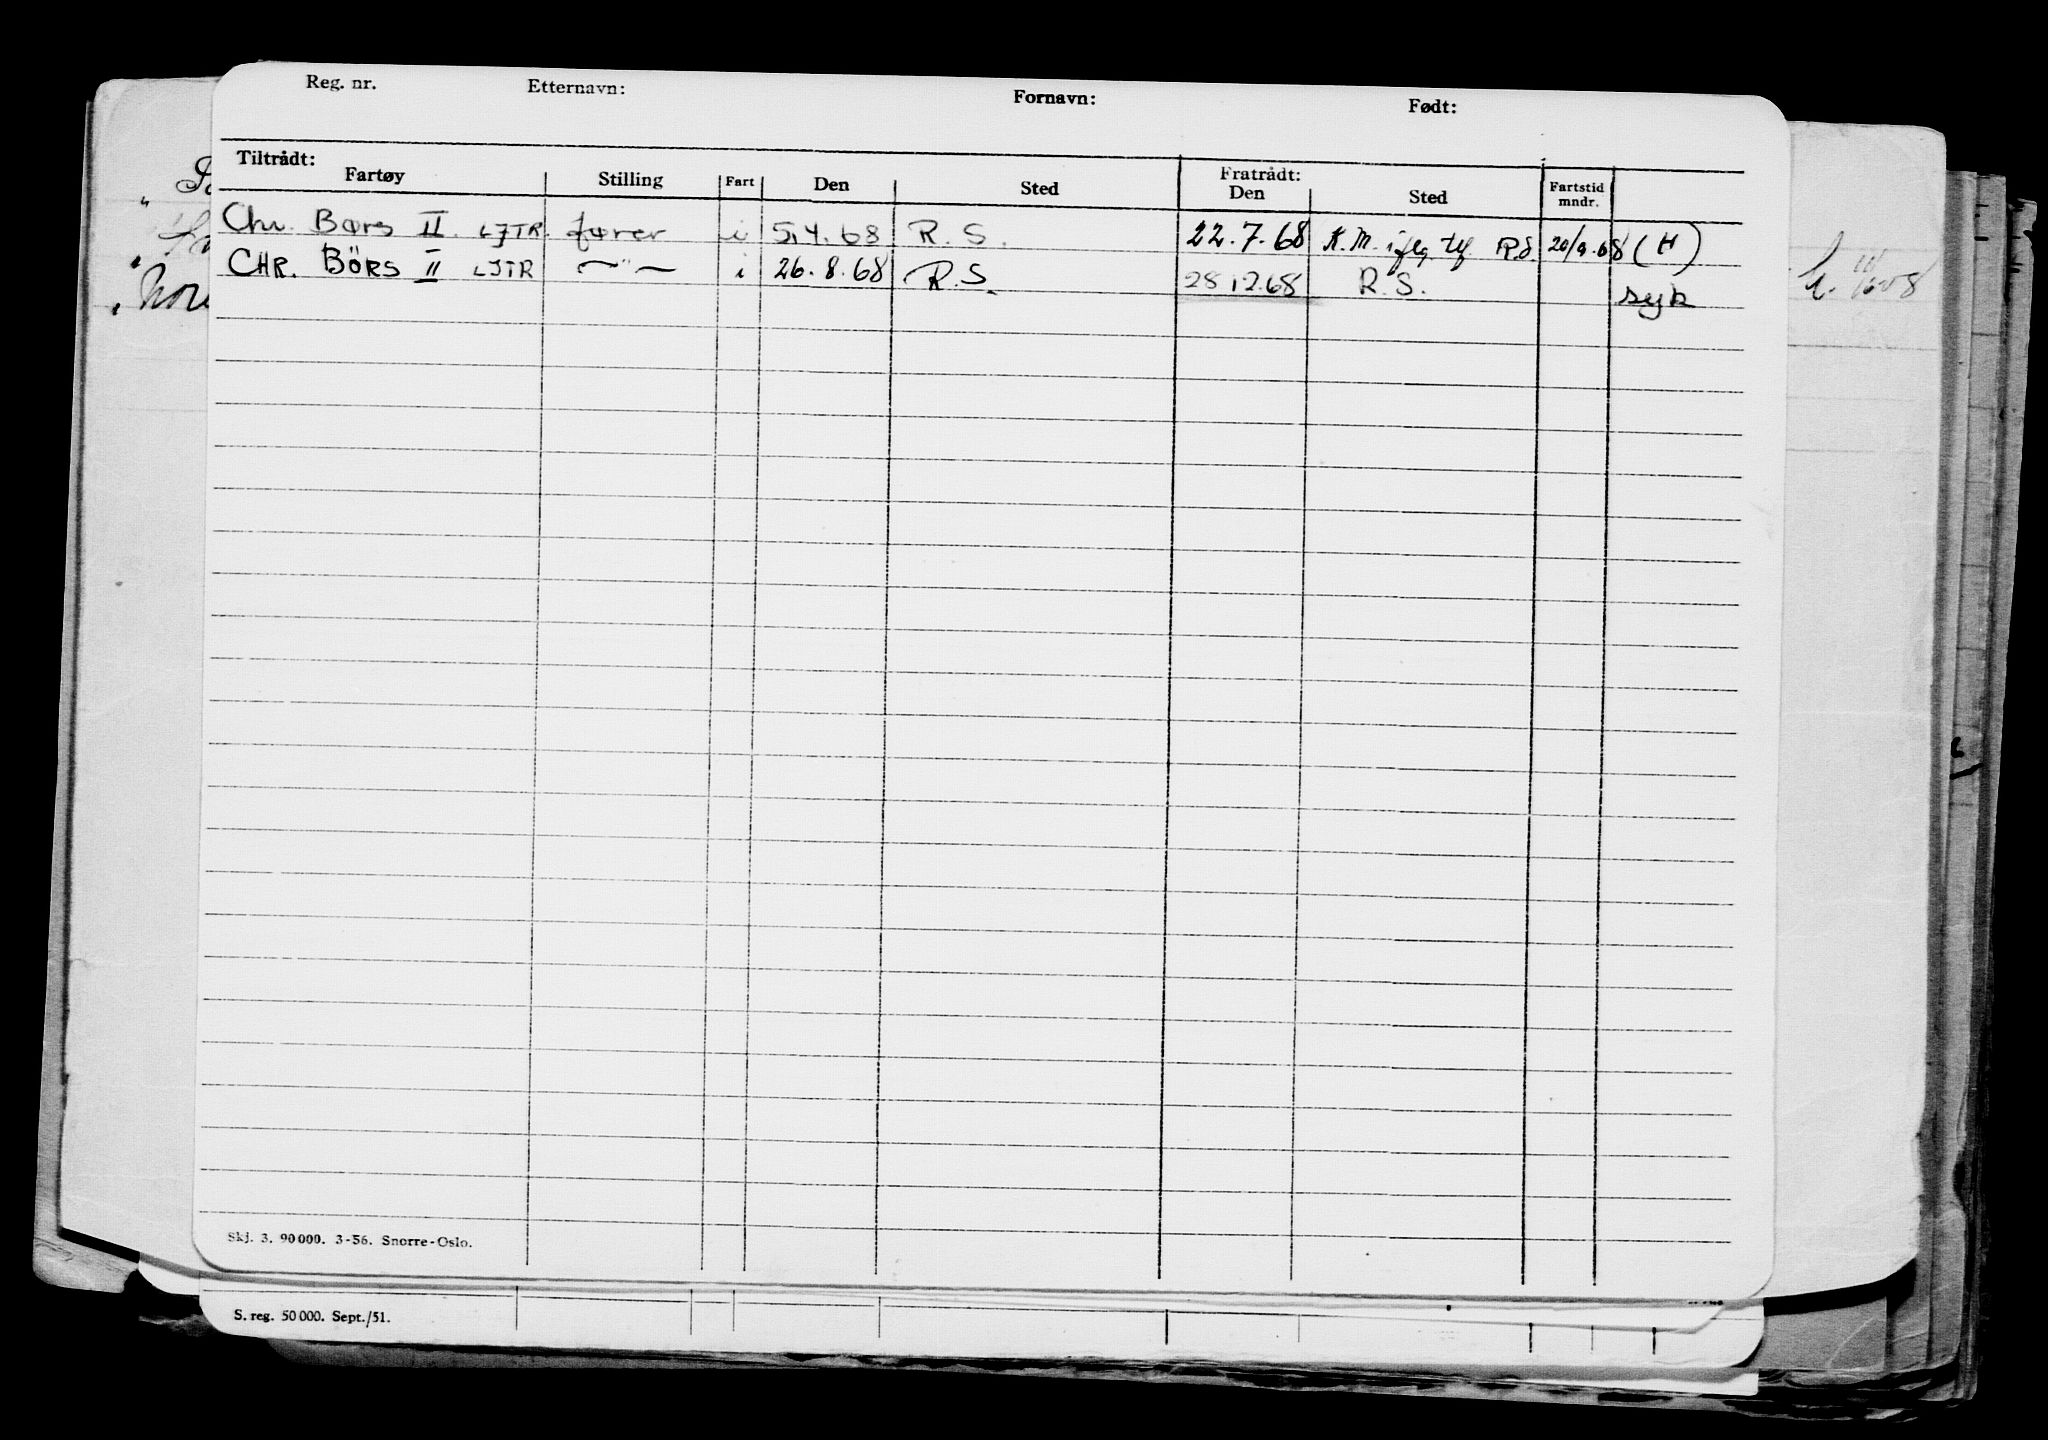 Reg. nr. Etternavn: Fornavn: Født:
Tiltrådt: Fratrådt:
Fartøy Stilling Fart Den Sted Den Sted Fartstid mndr.
Chr. Børs II. LJTR. fører i 5.4.68 R.S. 22.7.68 K.M. iflg. tlf. RS 20/9.68 (H)
CHR. BÖRS II LJTR —"— i 26.8.68 R.S. 28.12.68 R.S. syk
Skj. 3. 90000. 3-56. Snorre-Oslo.
S. reg. 50000. Sept./51.